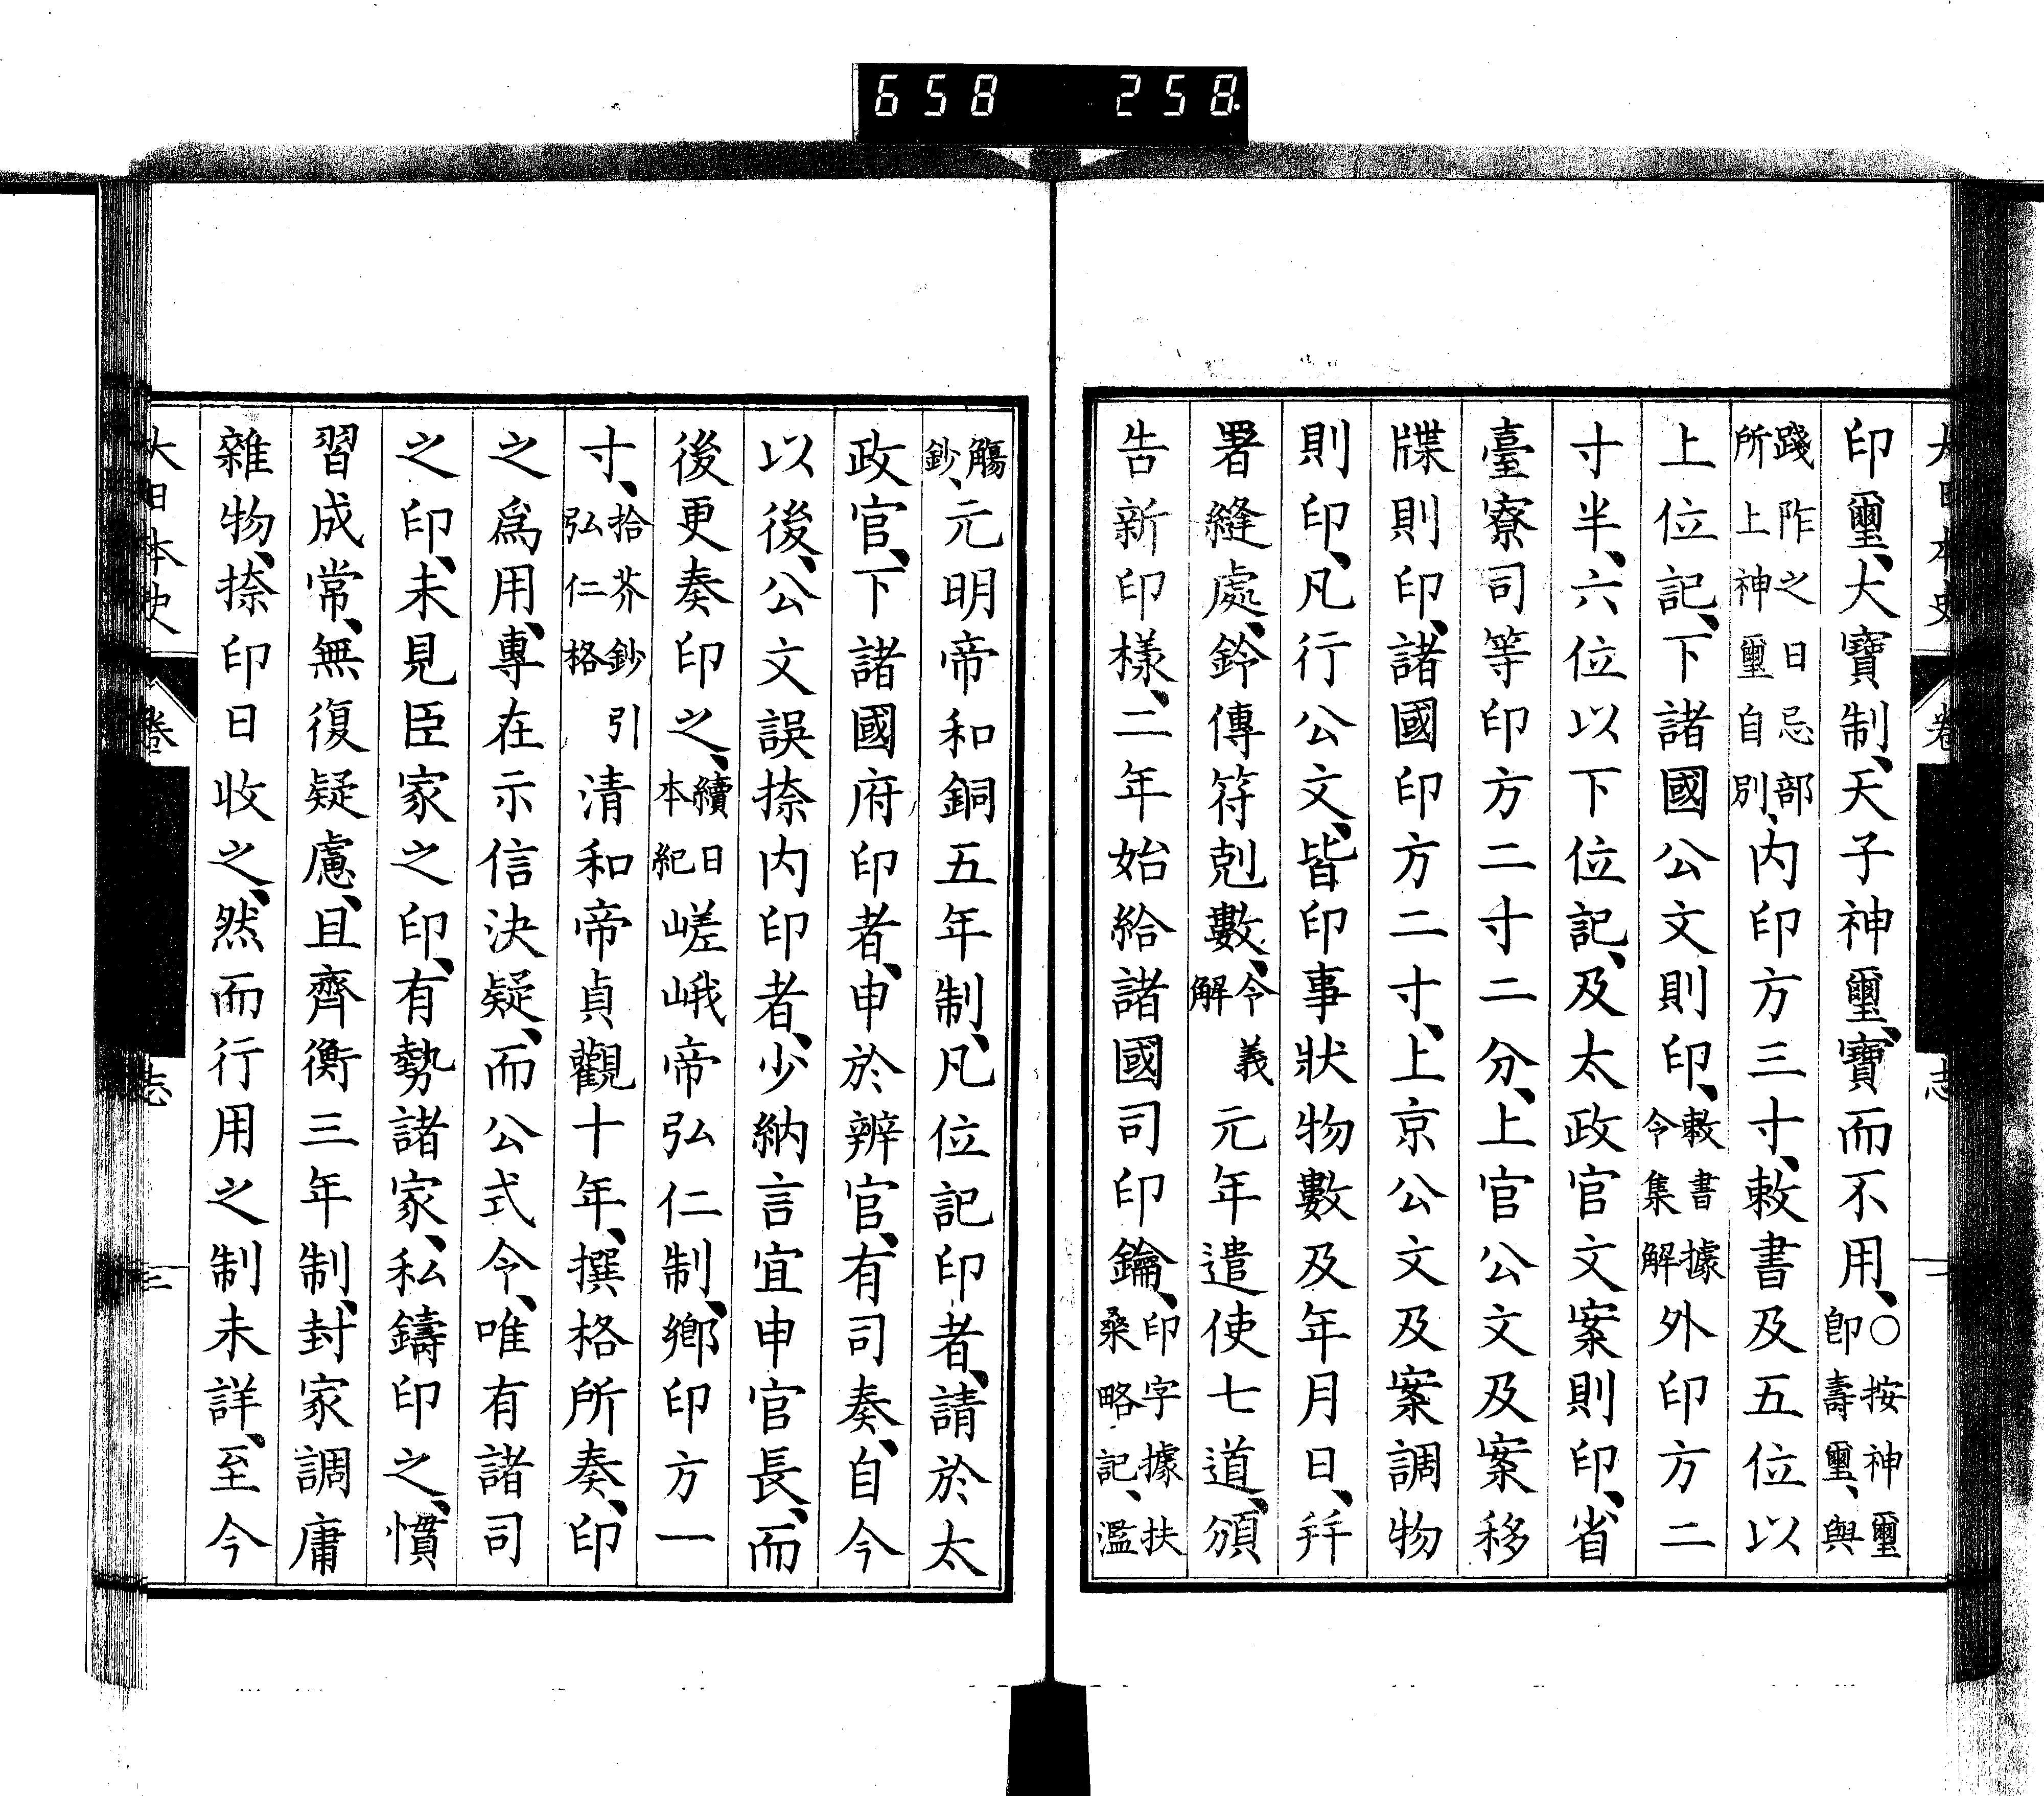 658 258
大日本史 卷 志 二
印璽、大寶制、天子神璽、寶而不用、○按神璽卽壽璽、與
踐阼之日忌部所上神璽自別、内印方三寸、敕書及五位以
上位記、下諸國公文則印、敕書據令集解外印方二
寸半、六位以下位記、及太政官文案則印、省
臺寮司等印方二寸二分、上官公文及案移
牒則印、諸國印方二寸、上京公文及案調物
則印、凡行公文、皆印事狀物數及年月日、幷
署縫處、鈴傳符剋數、令義解元年遣使七道、頒
告新印樣、二年始給諸國司印鑰、印字據扶桑略記、濫
觴鈔、元明帝和銅五年制、凡位記印者、請於太
政官、下諸國府印者、申於辨官、有司奏、自今
以後、公文誤捺内印者、少納言宜申官長、而
後更奏印之、續日本紀嵯峨帝弘仁制、鄕印方一
寸、拾芥鈔引弘仁格清和帝貞觀十年、撰格所奏、印
之爲用、專在示信決疑、而公式令、唯有諸司
之印、未見臣家之印、有勢諸家、私鑄印之、慣
習成常、無復疑慮、且齊衡三年制、封家調庸
雜物、捺印日收之、然而行用之制未詳、至今
大日本史 卷 志 三